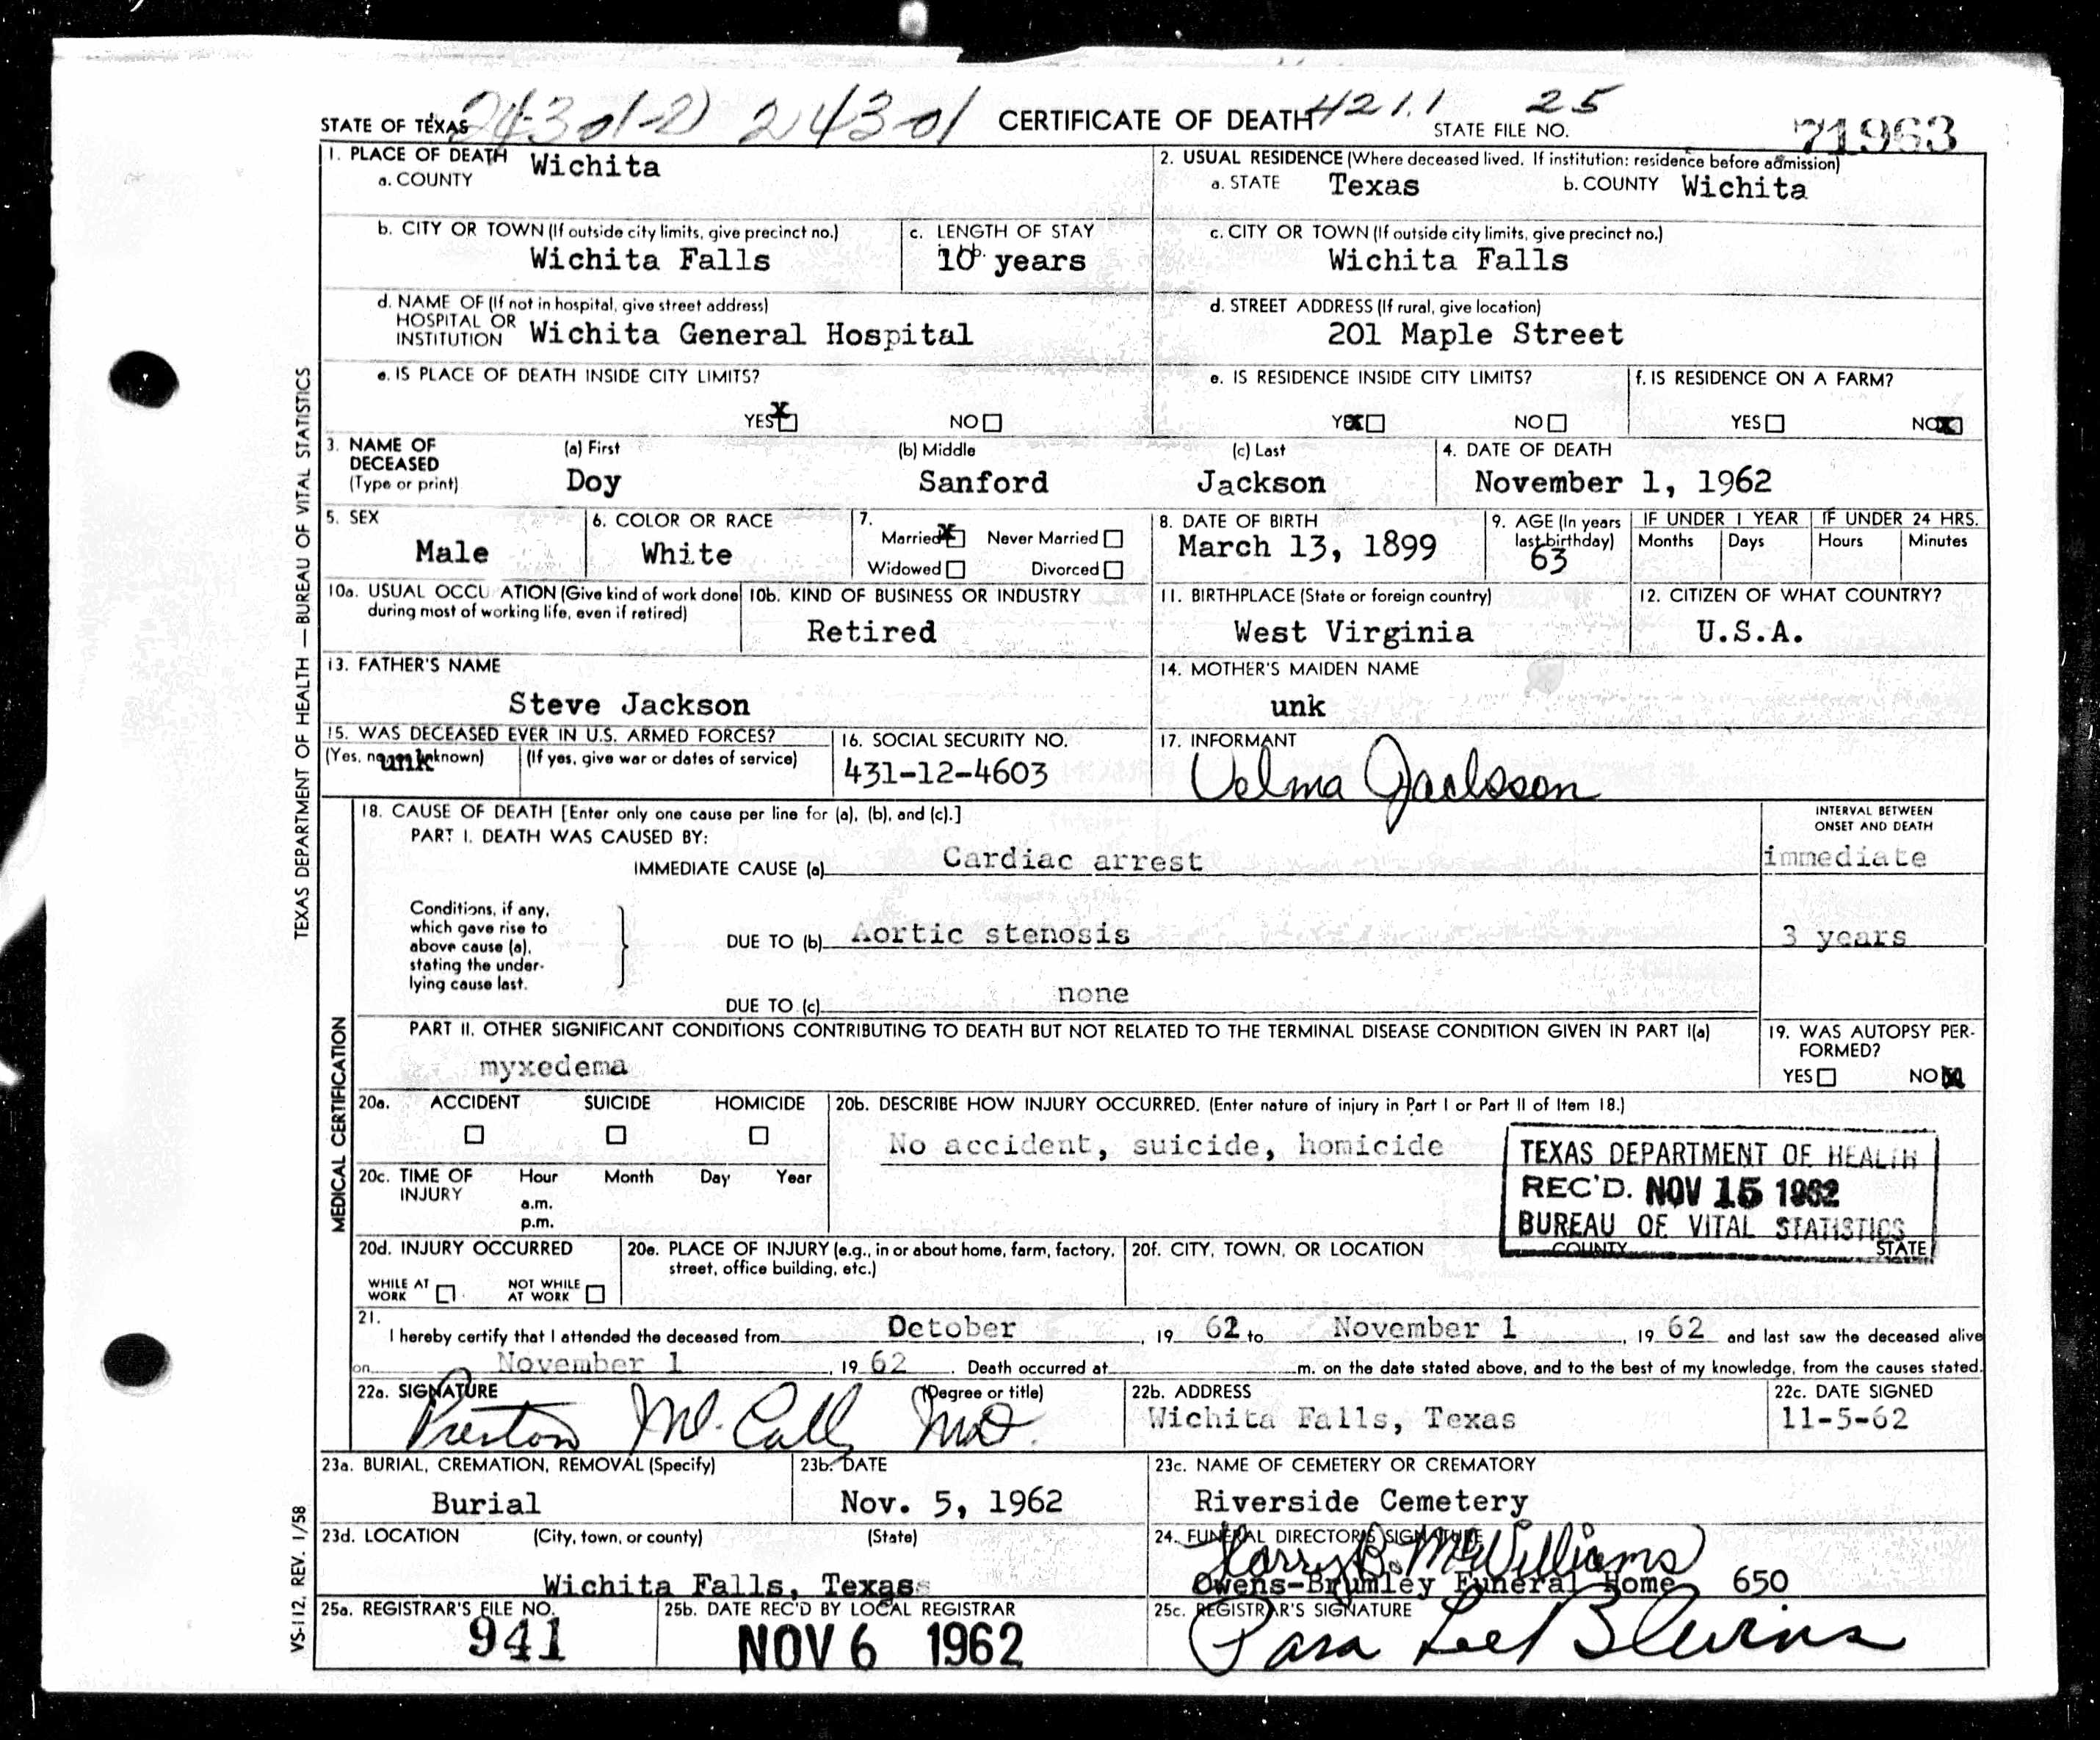 24301-2) 24301 CERTIFICATE OF DEATH 421.1 25
STATE OF TEXAS STATE FILE NO. 71963
1. PLACE OF DEATH
a. COUNTY Wichita
2. USUAL RESIDENCE (Where deceased lived. If institution: residence before admission)
a. STATE Texas b. COUNTY Wichita
b. CITY OR TOWN (If outside city limits, give precinct no.)
Wichita Falls
c. LENGTH OF STAY
in b.
10 years
c. CITY OR TOWN (If outside city limits, give precinct no.)
Wichita Falls
d. NAME OF (If not in hospital, give street address)
HOSPITAL OR
INSTITUTION Wichita General Hospital
d. STREET ADDRESS (If rural, give location)
201 Maple Street
e. IS PLACE OF DEATH INSIDE CITY LIMITS?
YES X NO
e. IS RESIDENCE INSIDE CITY LIMITS?
YES X NO
f. IS RESIDENCE ON A FARM?
YES NO X
3. NAME OF
DECEASED
(Type or print)
(a) First (b) Middle (c) Last
Doy Sanford Jackson
4. DATE OF DEATH
November 1, 1962
5. SEX
Male
6. COLOR OR RACE
White
7.
Married X Never Married
Widowed Divorced
8. DATE OF BIRTH
March 13, 1899
9. AGE (In years
last birthday)
63
IF UNDER 1 YEAR IF UNDER 24 HRS.
Months Days Hours Minutes
10a. USUAL OCCU ATION (Give kind of work done
during most of working life, even if retired)
10b. KIND OF BUSINESS OR INDUSTRY
Retired
11. BIRTHPLACE (State or foreign country)
West Virginia
12. CITIZEN OF WHAT COUNTRY?
U.S.A.
13. FATHER'S NAME
Steve Jackson
14. MOTHER'S MAIDEN NAME
unk
15. WAS DECEASED EVER IN U.S. ARMED FORCES?
(Yes, no, or unknown) (If yes, give war or dates of service)
unk
16. SOCIAL SECURITY NO.
431-12-4603
17. INFORMANT
Velma Jackson
18. CAUSE OF DEATH [Enter only one cause per line for (a), (b), and (c).]
INTERVAL BETWEEN
ONSET AND DEATH
PART I. DEATH WAS CAUSED BY:
IMMEDIATE CAUSE (a) Cardiac arrest immediate
Conditions, if any,
which gave rise to
above cause (a),
stating the under-
lying cause last.
DUE TO (b) Aortic stenosis 3 years
DUE TO (c) none
PART II. OTHER SIGNIFICANT CONDITIONS CONTRIBUTING TO DEATH BUT NOT RELATED TO THE TERMINAL DISEASE CONDITION GIVEN IN PART I(a)
myxedema
19. WAS AUTOPSY PER-
FORMED?
YES NO X
20a. ACCIDENT SUICIDE HOMICIDE
20b. DESCRIBE HOW INJURY OCCURRED. (Enter nature of injury in Part I or Part II of Item 18.)
No accident, suicide, homicide
TEXAS DEPARTMENT OF HEALTH
REC'D. NOV 15 1962
BUREAU OF VITAL STATISTICS
20c. TIME OF
INJURY
Hour Month Day Year
a.m.
p.m.
20d. INJURY OCCURRED
WHILE AT
WORK
NOT WHILE
AT WORK
20e. PLACE OF INJURY (e.g., in or about home, farm, factory,
street, office building, etc.)
20f. CITY, TOWN, OR LOCATION COUNTY STATE
21.
I hereby certify that I attended the deceased from October, 19 62 to November 1, 19 62 and last saw the deceased alive
on November 1, 19 62. Death occurred at m. on the date stated above, and to the best of my knowledge, from the causes stated.
22a. SIGNATURE (Degree or title)
Preston McCall MD.
22b. ADDRESS
Wichita Falls, Texas
22c. DATE SIGNED
11-5-62
23a. BURIAL, CREMATION, REMOVAL (Specify)
Burial
23b. DATE
Nov. 5, 1962
23c. NAME OF CEMETERY OR CREMATORY
Riverside Cemetery
23d. LOCATION (City, town, or county) (State)
Wichita Falls, Texas
24. FUNERAL DIRECTOR'S SIGNATURE
Harry B. McWilliams
Owens-Brumley Funeral Home 650
25a. REGISTRAR'S FILE NO.
941
25b. DATE REC'D BY LOCAL REGISTRAR
NOV 6 1962
25c. REGISTRAR'S SIGNATURE
Para Lee Blevins
TEXAS DEPARTMENT OF HEALTH — BUREAU OF VITAL STATISTICS
MEDICAL CERTIFICATION
VS-112, REV. 1/58